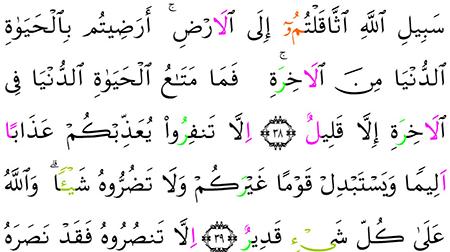 سَبِيلِ اللَّهِ ٱثَّاقَلْتُمُۥٓ إِلَى ٱلَارْضِ ۚ أَرَضِيتُم بِالْحَيَوٰةِ
الدُّنْيَا مِنَ ٱلَاخِرَةِ ۚ فَمَا مَتَٰعُ الْحَيَوٰةِ الدُّنْيَا فِى
ٱلَاخِرَةِ إِلَّا قَلِيلٌ ٣٨ اِلَّا تَنفِرُوا۟ يُعَذِّبْكُمْ عَذَابًا
اَلِيمًا وَيَسْتَبْدِلْ قَوْمًا غَيْرَكُمْ وَلَا تَضُرُّوهُ شَيْـًٔا ۗ وَاللَّهُ
عَلَىٰ كُلِّ شَىْءٍ قَدِيرٌ ٣٩ اِلَّا تَنصُرُوهُ فَقَدْ نَصَرَهُ